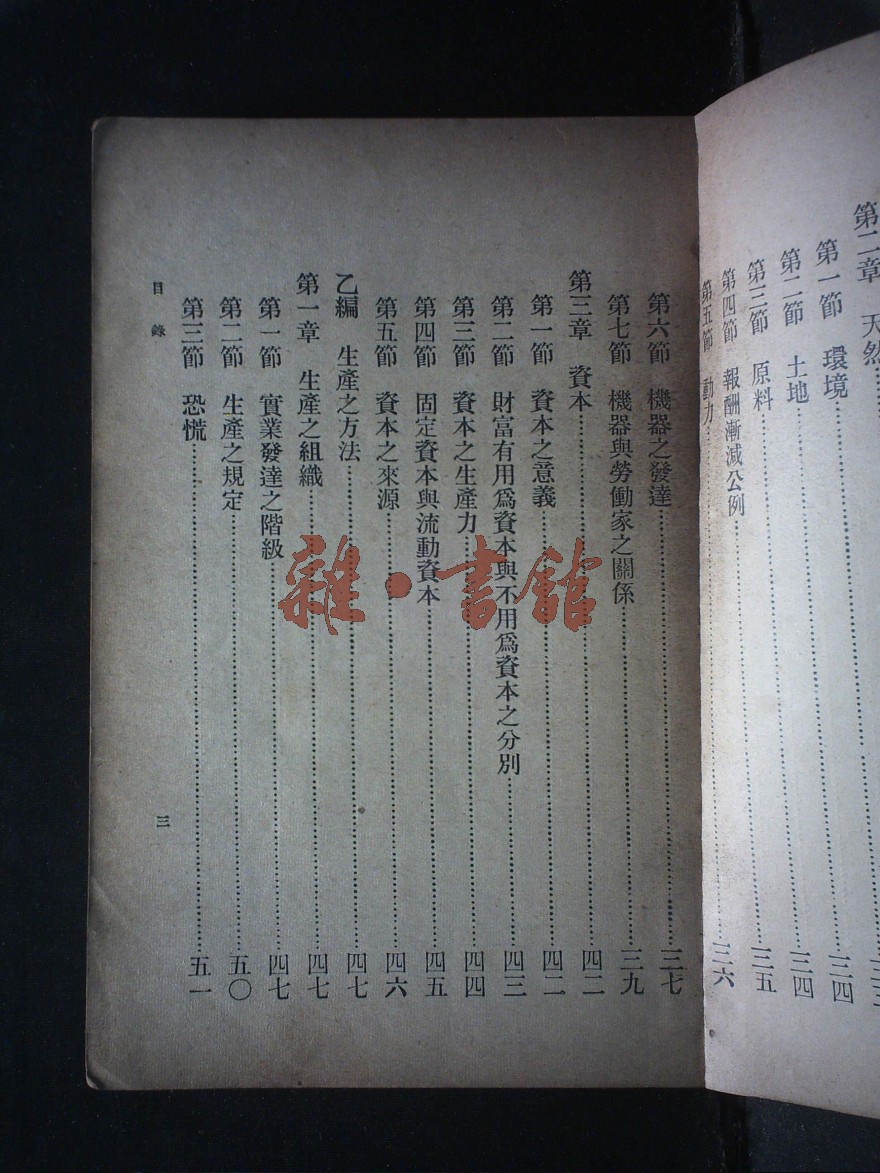 第二章　天然
第一節　環境 三四
第二節　土地 三四
第三節　原料 三五
第四節　報酬漸減公例
第五節　動力 三六
第六節　機器之發達 三七
第七節　機器與勞働家之關係 三九
第三章　資本 四二
第一節　資本之意義 四二
第二節　財富有用爲資本與不用爲資本之分別 四三
第三節　資本之生產力 四四
第四節　固定資本與流動資本 四五
第五節　資本之來源 四六
乙編　生產之方法 四七
第一章　生產之組織 四七
第一節　實業發達之階級 四七
第二節　生產之規定 五〇
第三節　恐慌 五一
目錄　三
雜·書館